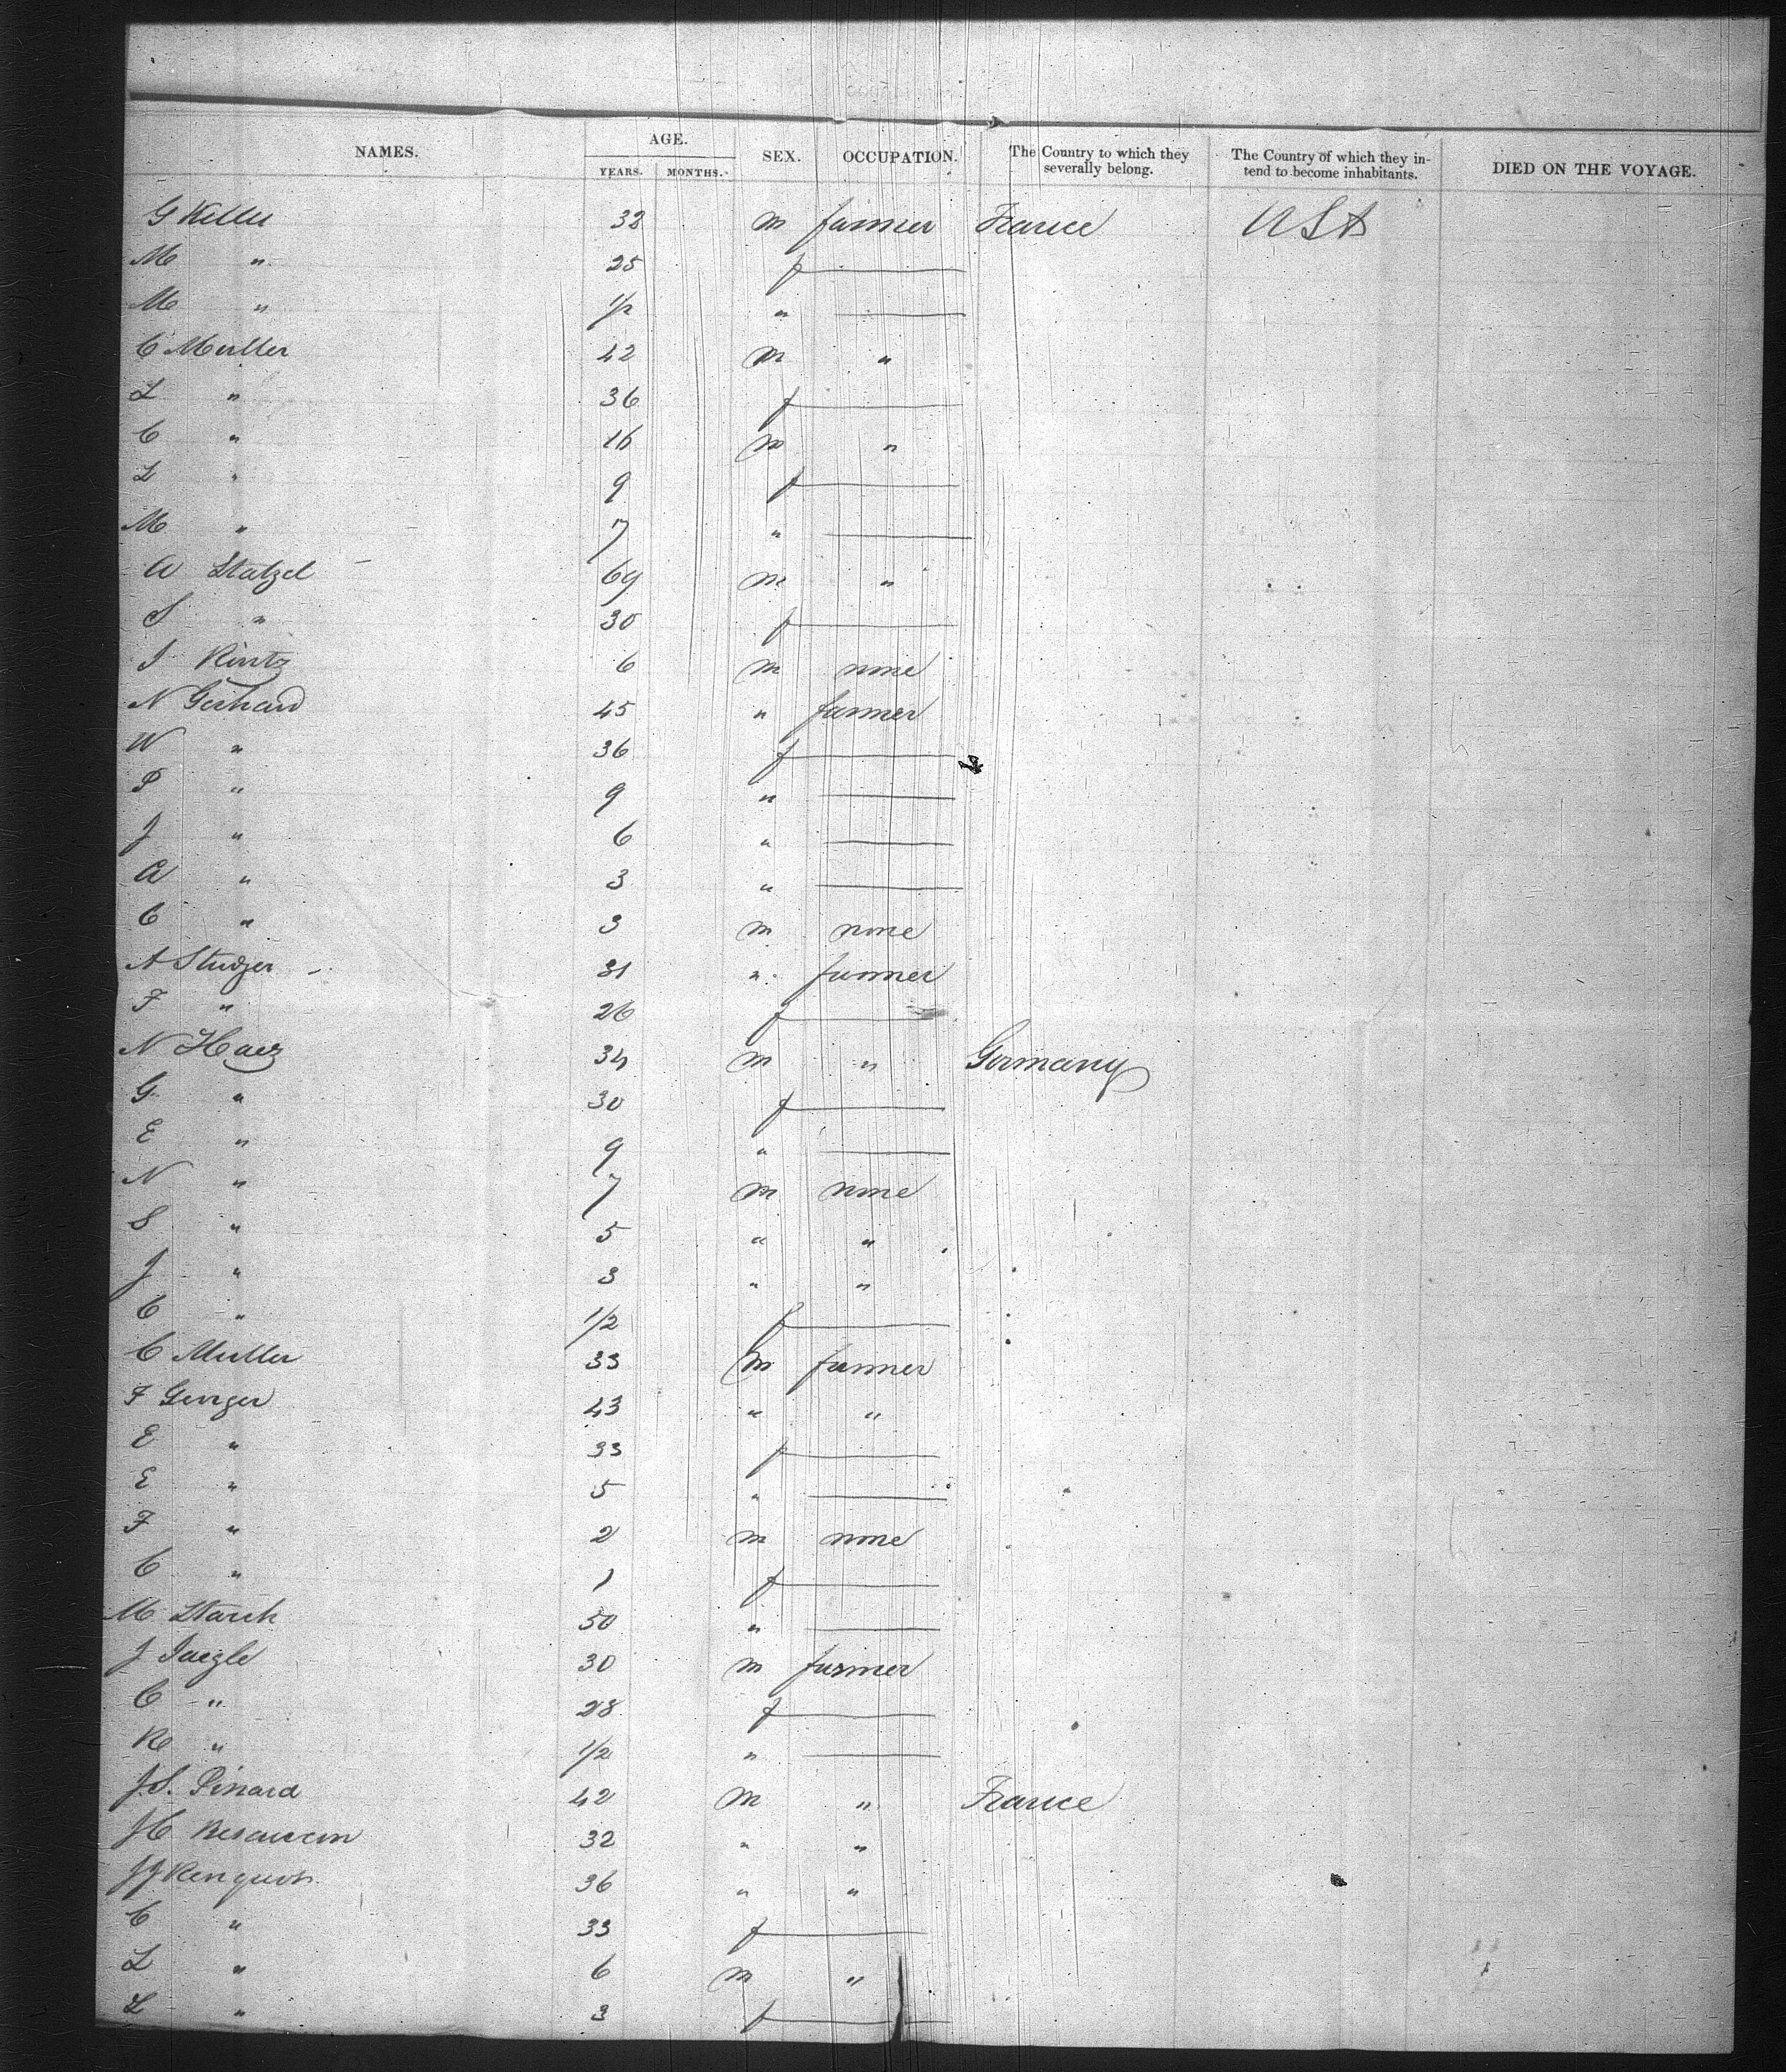 NAMES. AGE. YEARS. MONTHS. SEX. OCCUPATION. The Country to which they severally belong. The Country of which they intend to become inhabitants. DIED ON THE VOYAGE.
G Keller 32 m farmer France USA
M " 25 f
M " 1/2 "
C Muller 42 m "
L " 36 f
C " 16 m "
L " 9 f
M " 7 "
A Statzel 69 m "
S " 30 f
J Rintz 6 m none
N Gerhard 45 " farmer
W " 36 f
P " 9 "
J " 6 "
A " 3 "
C " 3 m none
A Studzer 31 " farmer
F " 26 f
N Haez 34 m " Germany
G " 30 f
E " 9 "
N " 7 m none
S " 5 " "
J " 3 " "
C " 1/2 f
C Muller 33 m farmer
F Genger 43 " "
E " 33 f
E " 5 "
F " 2 m none
C " 1 f
M Starck 50 "
J Jaegle 30 m farmer
C " 28 f
R " 1/2 "
J.S. Pinard 42 m " France
JC 32 " "
JJ 36 " "
C " 33 f
L " 6 m "
L " 3 f